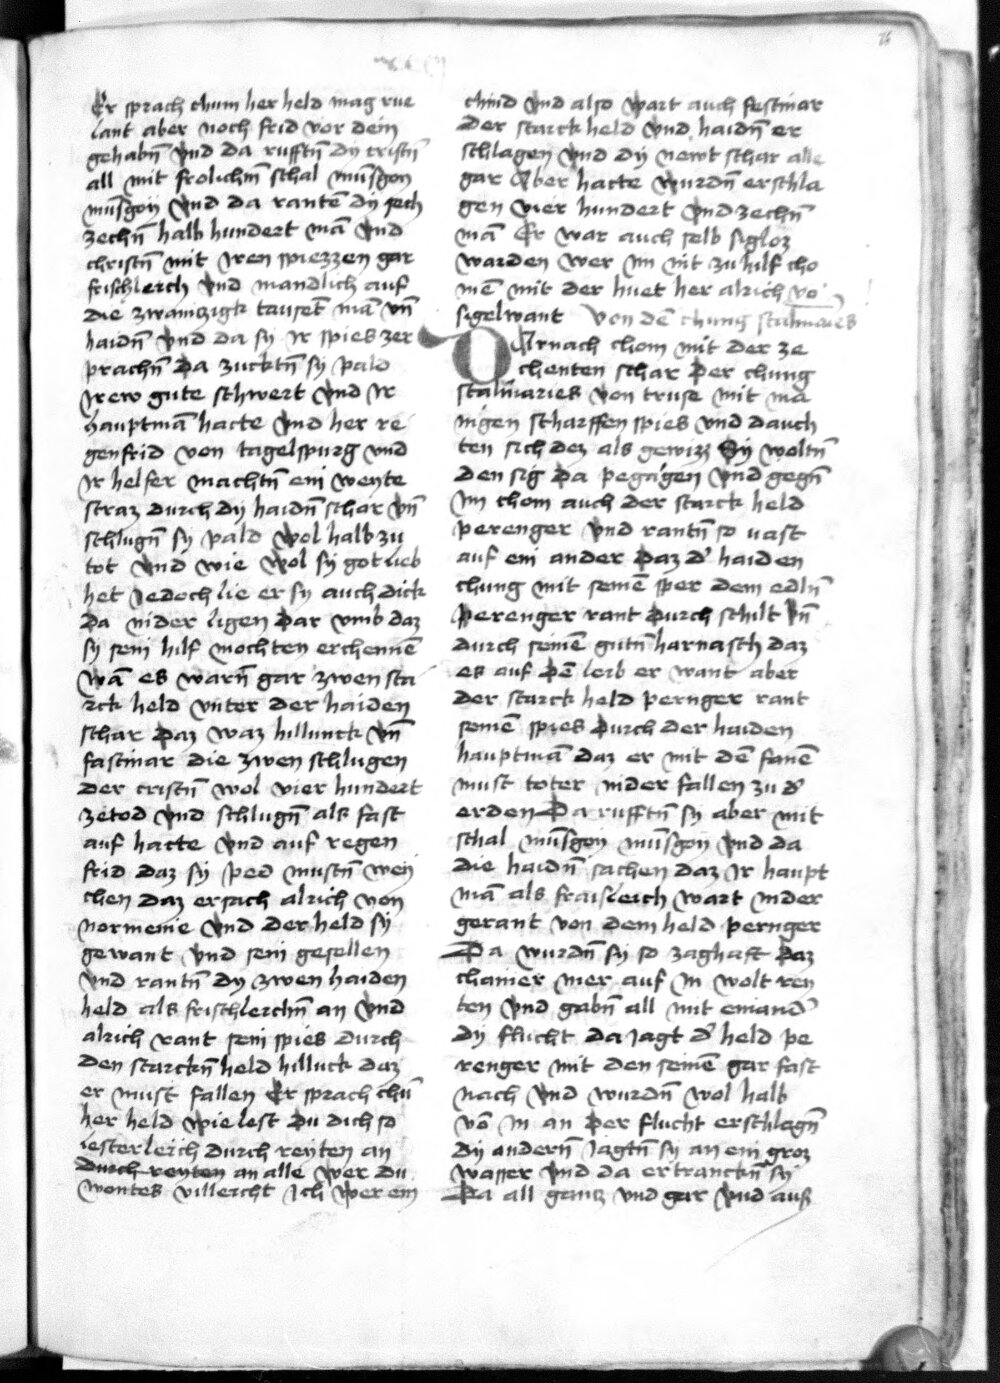 76
Er sprach chum her held mag rue
lant aber noch frid vor dein
gehabñ vnd da rufftñ dy cristñ
all mit frolichm̄ schal mūsgoy
mūsgoy vnd da rantē dy sech
zechñ halb hundert mā vnd
christñ mit Iren spiezzen gar
frischleich vnd mandlich auf
die zwainczigk tausēt mā vñ
haidñ vnd da sy Ir spies zer
prachñ Da zucktñ sy pald
Irew gute schwert vnd Ir
hauptmā hatte vnd her re
genfrid von tagelspurg vnd
Ir helfer machtñ ein weyte
straz durch dy haidñ schar vñ
schlugñ sy pald wol halb zu
tot vnd wie wol sy got lieb
het Iedoch lie er sy auch dick
Da nider ligen Dar vmb daz
sy sein hilf mochten erchennē
wā es warñ gar zwen sta
rck held vnter der haiden
schar Daz waz hillunck vñ
fastinar die zwen schlugen
der cristñ wol vier hundert
zetod vnd schlugñ als fast
auf hatte vnd auf regen
frid daz sy ped mustñ wey
chen daz ersach alrich von
normenie vnd der held sy
gewant vnd sein gesellen
vnd rantñ dy zwen haiden
held als frischleichñ an vnd
alrich rant sein spies durch
den starckñ held hilluck daz
er must fallen Er sprach chū
her held wie lest Du dich so
lesterleich durch reyten an
durch reyten an alle wer du
wontes villeicht Ich wer ein
chind vnd also wart auch fastinar
der starck held vnd haidñ er
schlagen vnd dy newt schar alle
gar Aber hatte wurdñ erschla
gen vier hundert vnd zechñ
mā Er war auch selb sigloz
warden wer im nit zu hilf cho
mē mit der huet her alrich vō
sigelwant Von dē chung stalmaries
DArnach chom mit der ze
chenten schar Der chung
stalmaries von truse mit ma
nigen scharffen spies vnd dauch
ten sich dez als gewizz Sy woltñ
den sig da pegagen vnd gegñ
Im chom auch der starck held
perenger vnd rantñ so vast
auf ein ander Daz d' haiden
chung mit seinē sper dem edlñ
perenger rant Durch schilt vñ
durch seinē gutñ harnasch daz
es auf Dē leib er want aber
der starck held pernger rant
seinē spies Durch der haiden
hauptmā daz er mit dē fanē
must toter nider fallen zu d'
erden Da rufftñ sy aber mit
schal mūsgoy mūsgoy vnd da
die haidñ sachen daz Ir haupt
mā als fraisleich wart nider
gerant von dem held pernger
Da wurdñ sy so zaghaft Daz
chainer mer auf in wolt rey
ten vnd gabñ all mit einand'
dy flucht da Iagt d' held pe
renger mit den seinē gar fast
nach vnd wurdñ wol halb
vō in an Der flucht erschlagñ
dy andern̄ Iagtñ sy an ein groz
wasser vnd da ertranckñ sy
Da all gancz vnd gar vnd auß